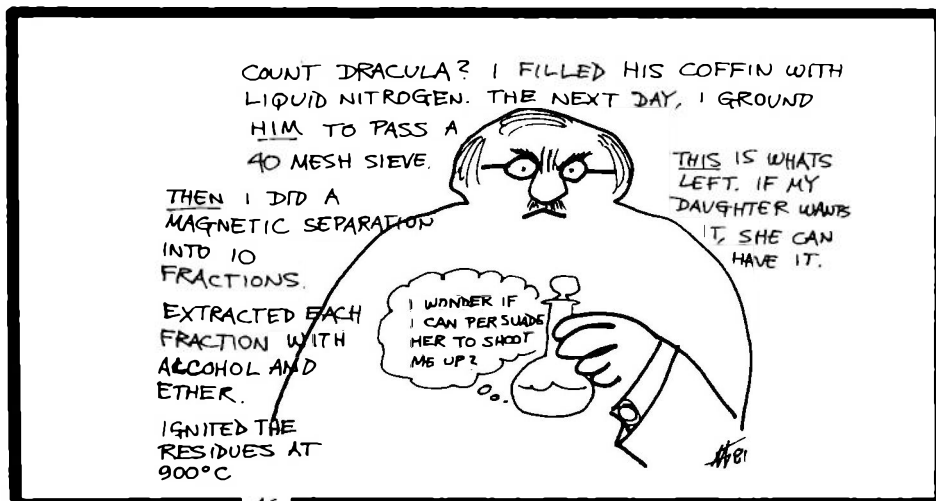 COUNT DRACULA? I FILLED HIS COFFIN WITH
LIQUID NITROGEN. THE NEXT DAY, I GROUND
HIM TO PASS A
40 MESH SIEVE.
THEN I DID A
MAGNETIC SEPARATION
INTO 10
FRACTIONS.
EXTRACTED EACH
FRACTION WITH
ALCOHOL AND
ETHER.
IGNITED THE
RESIDUES AT
900°C
THIS IS WHATS
LEFT. IF MY
DAUGHTER WANTS
IT, SHE CAN
HAVE IT.
I WONDER IF
I CAN PERSUADE
HER TO SHOOT
ME UP?
81